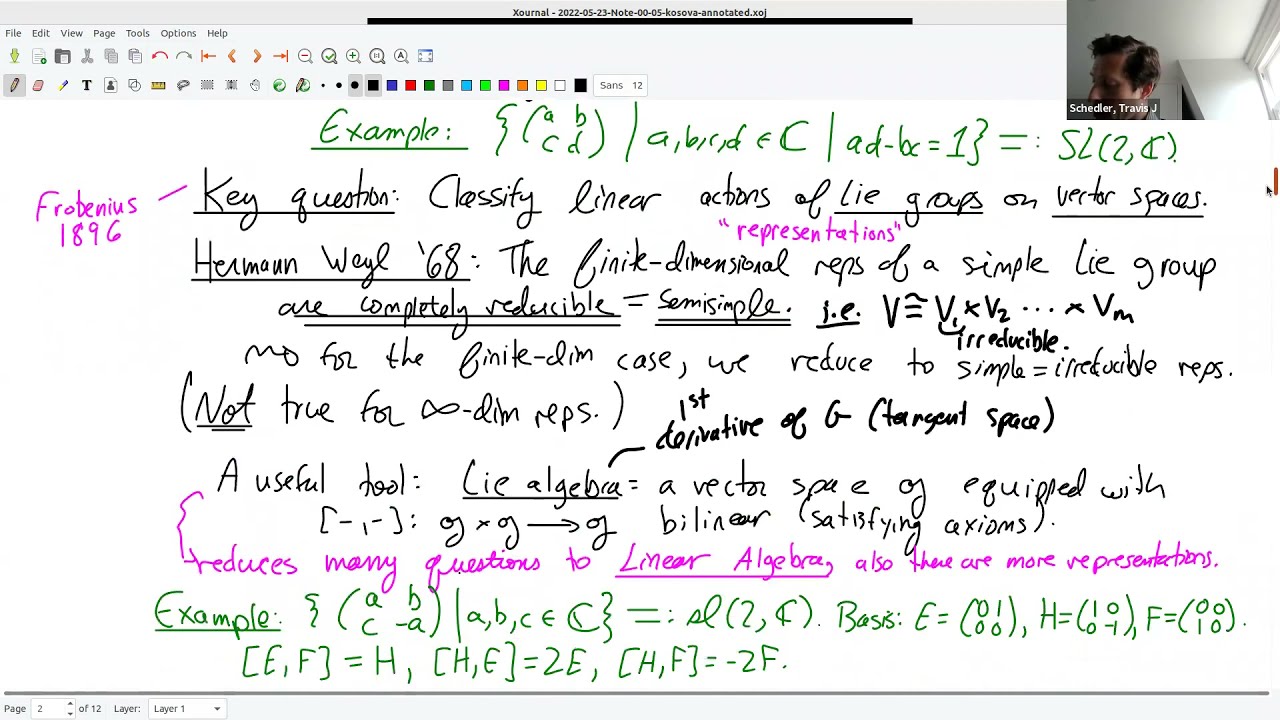 Xournal - 2022-05-23-Note-00-05-kosova-annotated.xoj
File Edit View Page Tools Options Help
Sans 12
Schedler, Travis J
Example: {(a b c d) | a,b,c,d ∈ ℂ | ad-bc = 1} =: SL(2, ℂ).
Frobenius 1896
Key question: Classify linear actions of Lie groups on vector spaces.
"representations"
Hermann Weyl '68: The finite-dimensional reps of a simple Lie group
are completely reducible = semisimple. i.e. V ≅ V₁ × V₂ ... × Vm
irreducible.
⇝ for the finite-dim case, we reduce to simple = irreducible reps.
(Not true for ∞-dim reps.)
1st derivative of G (tangent space)
A useful tool: Lie algebra = a vector space g equipped with
[-,-]: g × g → g bilinear (satisfying axioms).
reduces many questions to Linear Algebra, also there are more representations.
Example: {(a b c -a) | a,b,c ∈ ℂ} =: sl(2, ℂ). Basis: E = (0 1 0 0), H = (1 0 0 -1), F = (0 0 1 0).
[E,F] = H, [H,E] = 2E, [H,F] = -2F.
Page 2 of 12 Layer: Layer 1